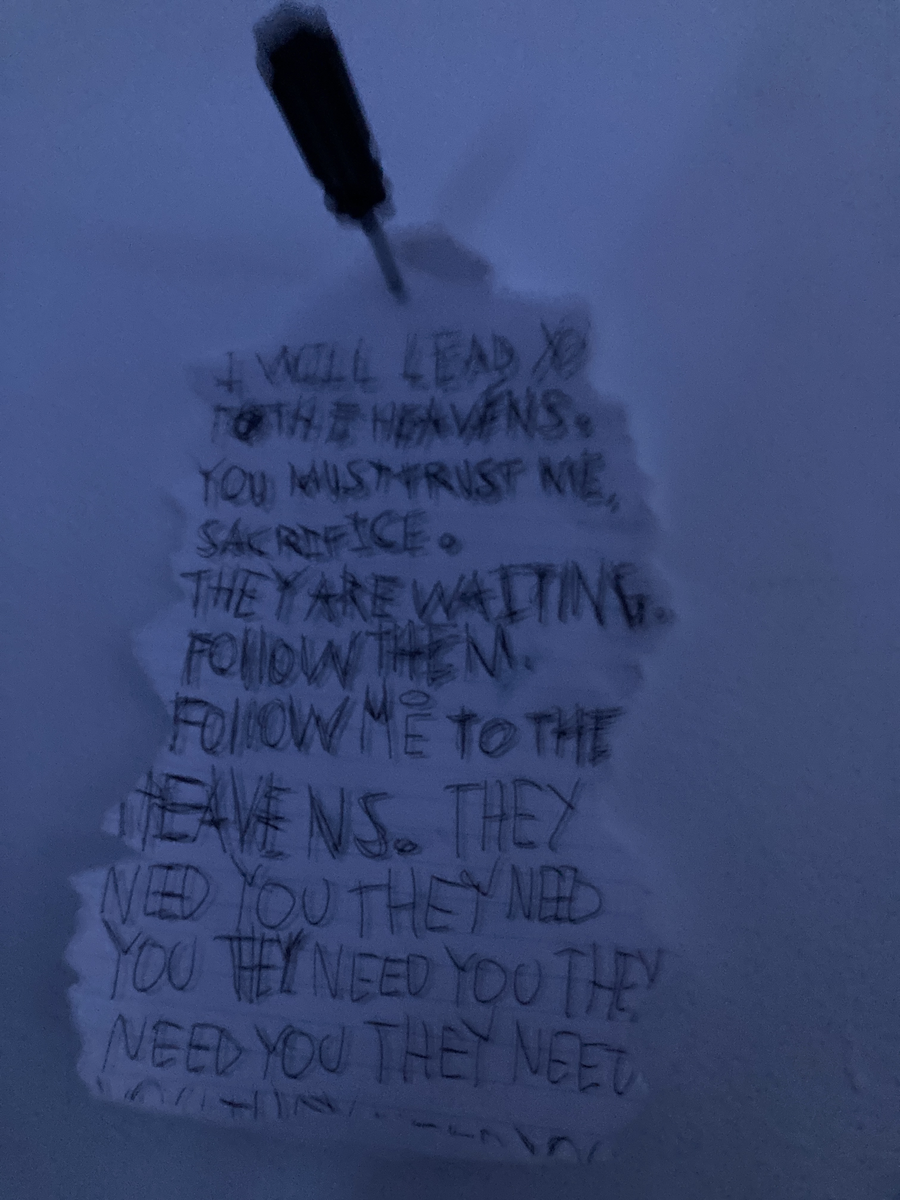 I WILL LEAD YO
TO THE HEAVENS.
YOU MUST TRUST ME,
SACRIFICE.
THEY ARE WAITING.
FOllOW THEM.
FOllOW ME TO THE
HEAVENS. THEY
NEED YOU THEY NEED
YOU THEY NEED YOU THEY
NEED YOU THEY NEED